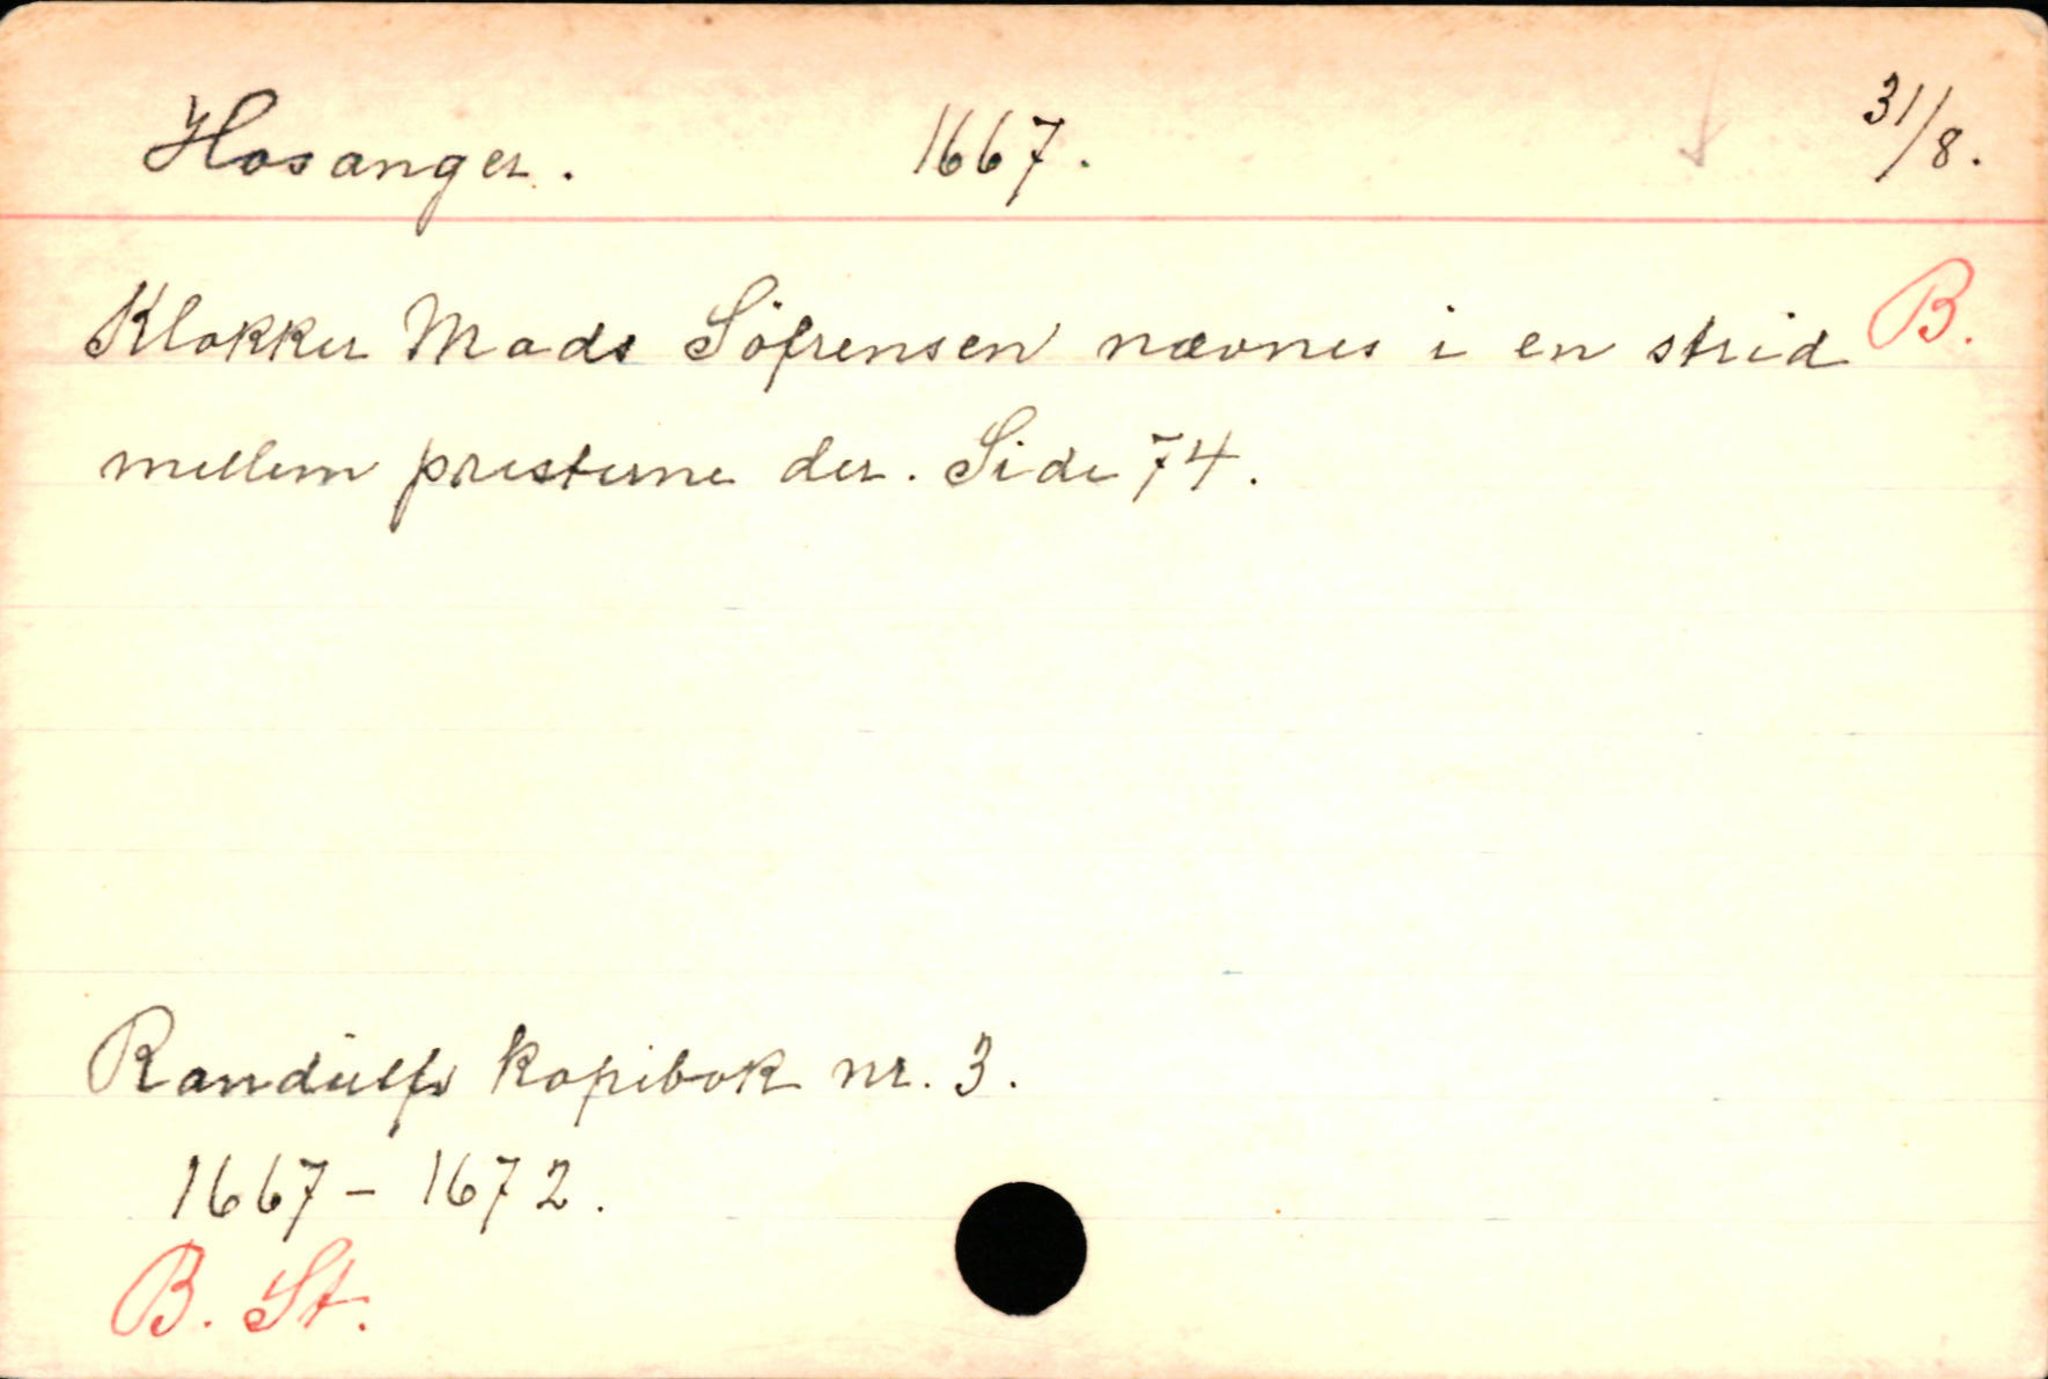 Hosanger. 1667. 31/8.
Klokker Mads Söfrensen nævnes i en strid B.
mellem presterne der. Side 74.
Randulfs kopibok nr. 3.
1667 - 1672.
B. St.